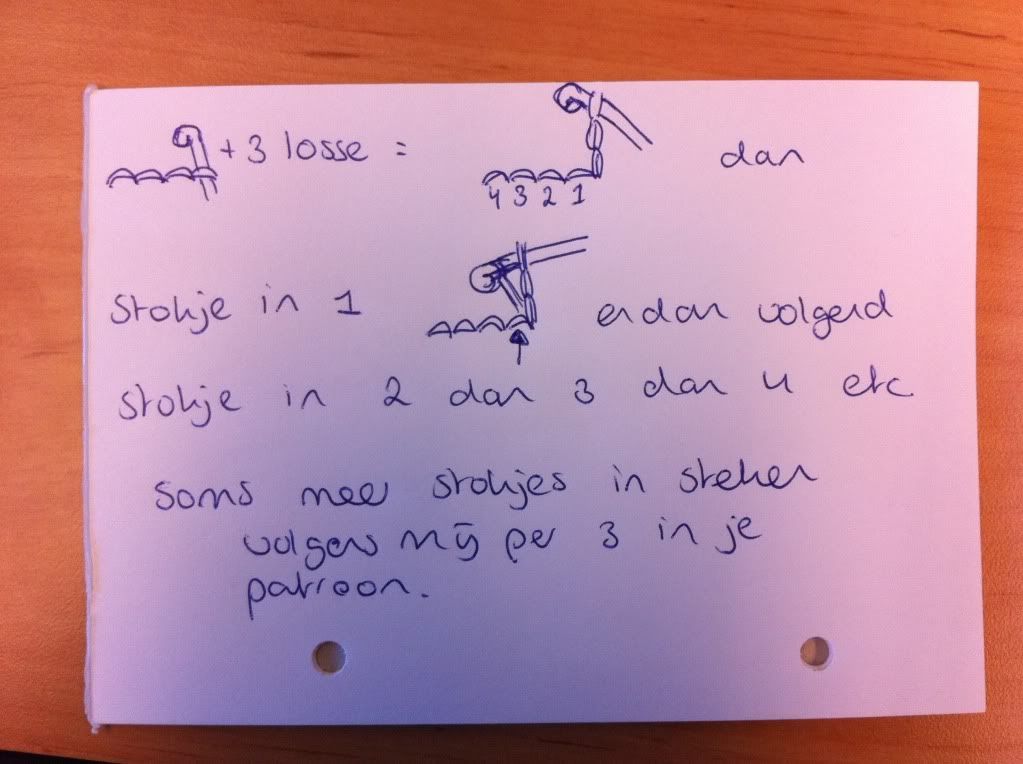 + 3 losse = dan
4 3 2 1
Stokje in 1 en dan volgend
stokje in 2 dan 3 dan 4 etc
Soms meer stokjes in steken
volgens mij per 3 in je
patroon.